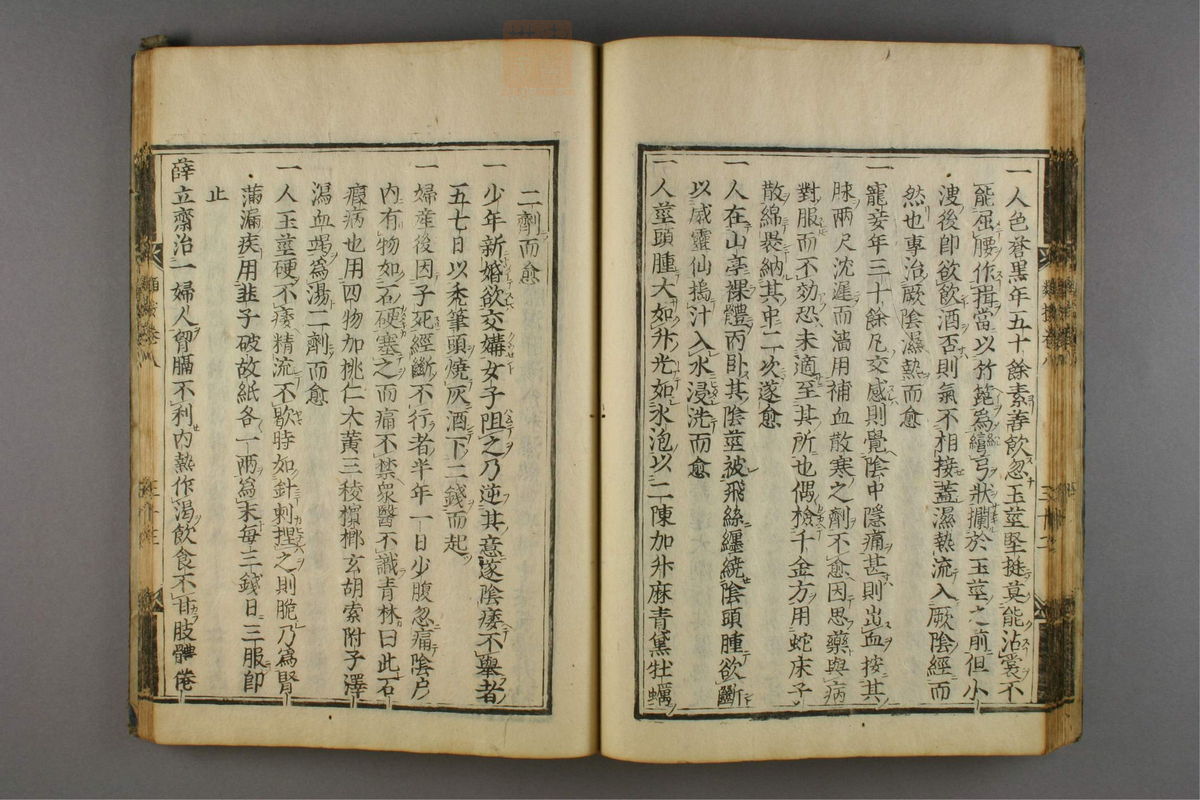 一人色蒼黒年五十餘素善飲忽玉莖堅挺莫能沾裳不
能屈腰作揖當以竹篦為彎弓狀攔於玉莖之前但小
溲後即飲飲酒否則氣不相接蓋濕熱流入厥陰經而
然也專治厥陰濕熱而愈
一寵妾年三十餘凡交感則覺陰中隱痛甚則出血按其
脉兩尺沈遲而濇用補血散寒之劑不愈因思藥與病
對服而不効恐未適至其所也偶檢千金方用蛇床子
散綿裹納其中二次遂愈
一人在山亭裸體而卧其陰莖被飛絲纏繞陰頭腫欲斷
以威靈仙搗汁入水浸洗而愈
一人莖頭腫大如升光如水泡以二陳加升麻青黛牡蠣
二劑而愈
一少年新婚欲交媾女子阻之乃逆其意遂陰痿不舉者
五七日以禿筆頭燒灰酒下二錢而起
一婦産後因子死經斷不行者半年一日少腹忽痛陰户
内有物如石硬塞之而痛不禁衆醫不識青林曰此石
瘕病也用四物加桃仁大黄三稜檳榔玄胡索附子澤
瀉血竭為湯二劑而愈
一人玉莖硬不痿精流不歇時如針刺捏之則脆乃為腎
滿漏疾用韭子破故紙各一兩為末每三錢日三服即
止
薛立齋治一婦人胷膈不利内熱作渴飲食不甘肢體倦